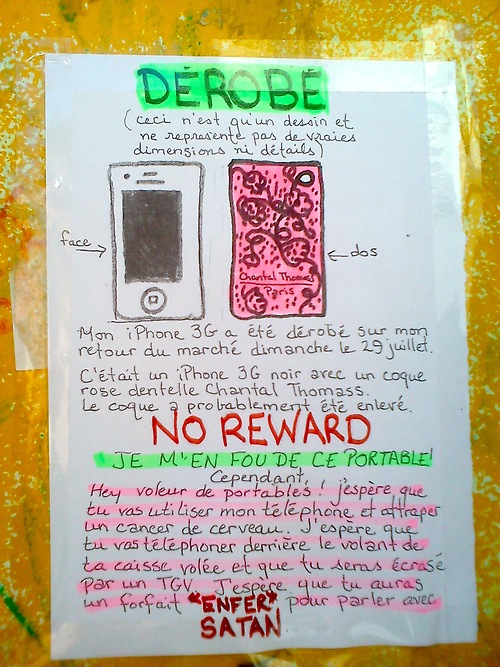 DÉROBÉ
(ceci n'est qu'un dessin et
ne représente pas de vraies
dimensions ni détails)
face
dos
Chantal Thomass
Paris
Mon iPhone 3G a été dérobé sur mon
retour du marché dimanche le 29 juillet.
C'était un iPhone 3G noir avec un coque
rose dentelle Chantal Thomass.
Le coque a probablement été enlevé.
NO REWARD
JE M'EN FOU DE CE PORTABLE!
Cependant,
Hey voleur de portables! j'espère que
tu vas utiliser mon téléphone et attraper
un cancer de cerveau. J'espère que
tu vas téléphoner derrière le volant de
ta caisse volée et que tu seras écrasé
par un TGV. J'espère que tu auras
un forfait "ENFER", pour parler avec
SATAN